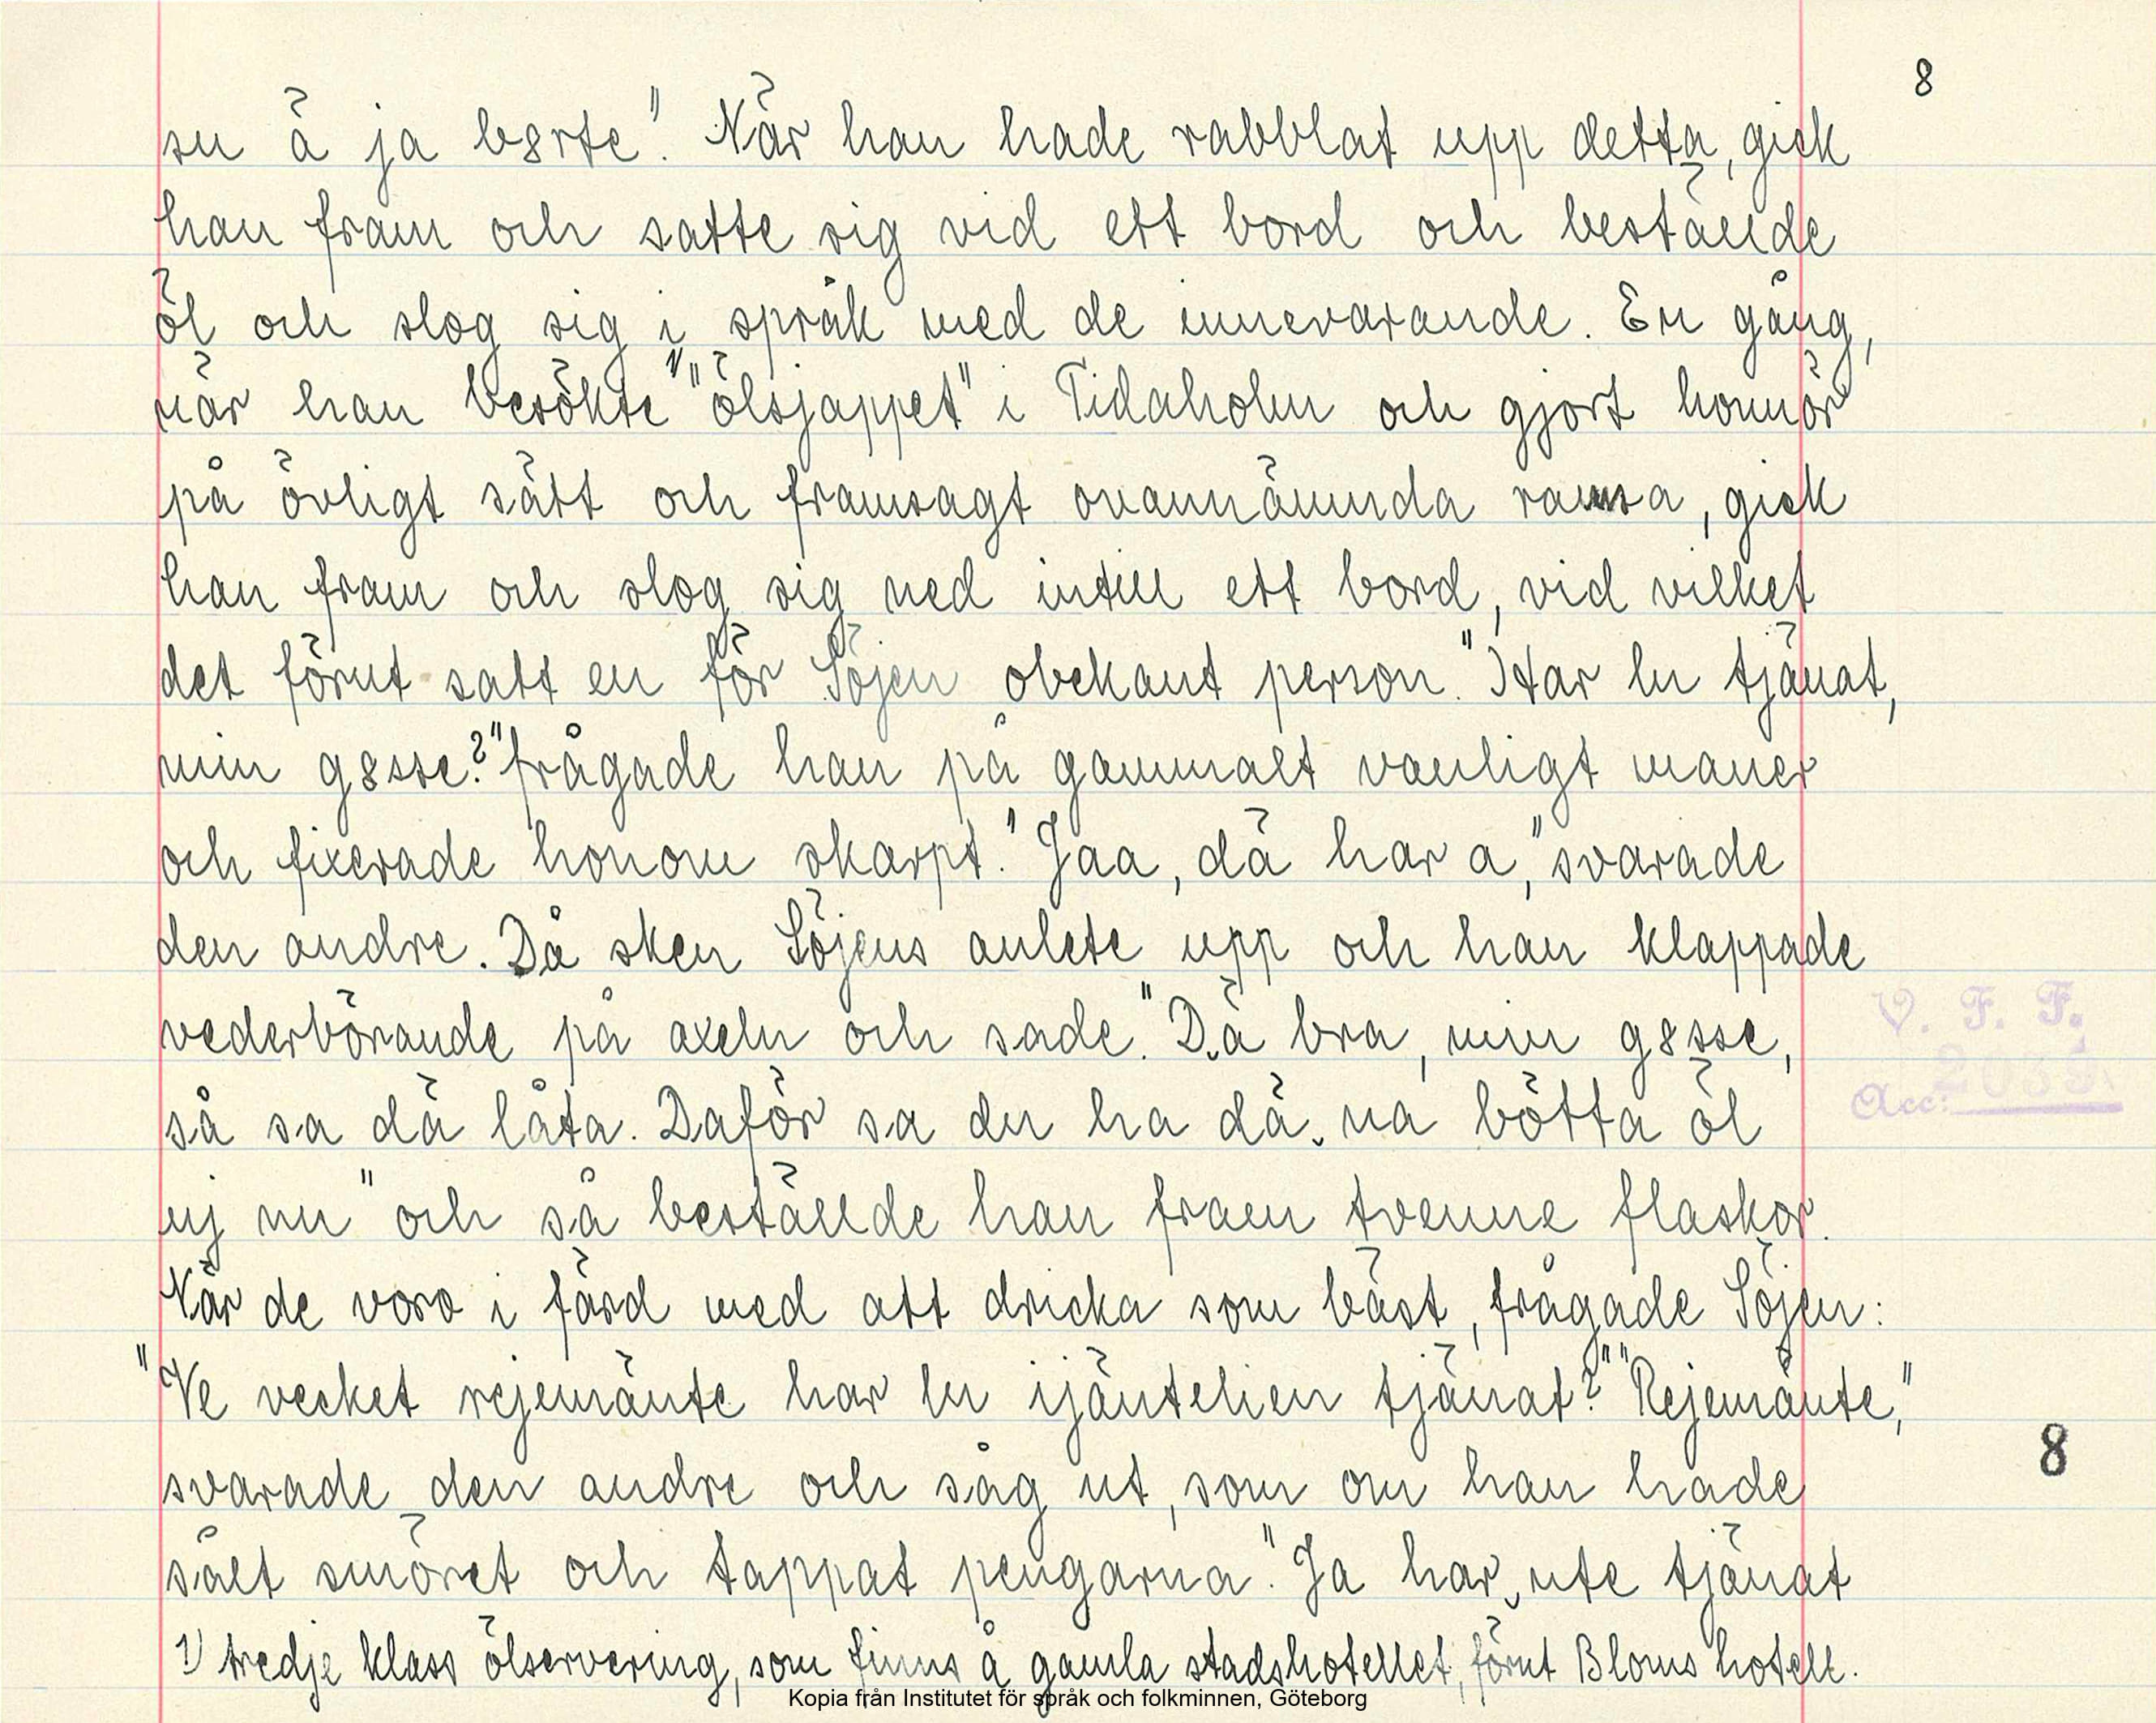 8
su ä ja b8rte". När han hade rabblat upp detta, gick
han fram och satte sig vid ett bord och beställde
öl och slog sig i språk med de innevarande. En gång,
när han besökte 1) "ölsjappet" i Tidaholm och gjort honnör
på övligt sätt och framsagt ovannämnda ramsa, gick
han fram och slog sig ned intill ett bord, vid vilket
det förut satt en för Söjen obekant person. "Har hu tjänat,
min g8sse?" frågade han på gammalt vanligt maner
och fixerade honom skarpt. "Jaa, dä har a," svarade
den andre. Då sken Söjens anlete upp och han klappade
vederbörande på axeln och sade. "Dä bra, min g8sse,
så sa dä låta. Daför sa du ha dä na bötta öl
uj nu" och så beställde han fram tvenne flaskor.
När de voro i färd med att dricka som bäst, frågade Söjen:
"Ve vecket rejemänte har hu ijäntelien tjänat?" "Rejemänte,"
svarade den andre och såg ut, som om han hade
sålt smöret och tappat pengarna. "Ja har nte tjänat
1) tredje klass ölservering, som finns å gamla stadshotellet, förut Bloms hotell.
V. F. F.
Acc:
8
Kopia från Institutet för språk och folkminnen, Göteborg